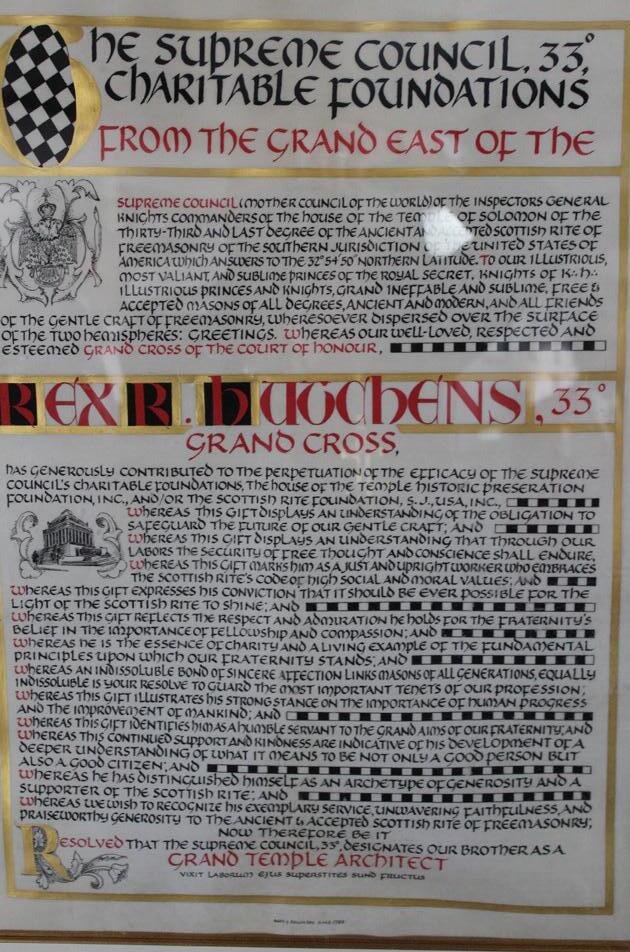 THE SUPREME COUNCIL, 33°,
CHARITABLE FOUNDATIONS
FROM THE GRAND EAST OF THE
SUPREME COUNCIL (MOTHER COUNCIL OF THE WORLD) OF THE INSPECTORS GENERAL
KNIGHTS COMMANDERS OF THE HOUSE OF THE TEMPLE OF SOLOMON OF THE
THIRTY-THIRD AND LAST DEGREE OF THE ANCIENT AND ACCEPTED SCOTTISH RITE OF
FREEMASONRY OF THE SOUTHERN JURISDICTION OF THE UNITED STATES OF
AMERICA WHICH ANSWERS TO THE 32° 54' 50" NORTHERN LATITUDE. TO OUR ILLUSTRIOUS,
MOST VALIANT, AND SUBLIME PRINCES OF THE ROYAL SECRET, KNIGHTS OF K∴H∴
ILLUSTRIOUS PRINCES AND KNIGHTS, GRAND INEFFABLE AND SUBLIME, FREE &
ACCEPTED MASONS OF ALL DEGREES, ANCIENT AND MODERN, AND ALL FRIENDS
OF THE GENTLE CRAFT OF FREEMASONRY, WHERESOEVER DISPERSED OVER THE SURFACE
OF THE TWO HEMISPHERES: GREETINGS. WHEREAS OUR WELL-LOVED, RESPECTED AND
ESTEEMED GRAND CROSS OF THE COURT OF HONOUR,
REX R. HUTCHENS, 33°
GRAND CROSS,
HAS GENEROUSLY CONTRIBUTED TO THE PERPETUATION OF THE EFFICACY OF THE SUPREME
COUNCIL'S CHARITABLE FOUNDATIONS, THE HOUSE OF THE TEMPLE HISTORIC PRESERATION
FOUNDATION, INC., AND/OR THE SCOTTISH RITE FOUNDATION, S.J., USA, INC.,
WHEREAS THIS GIFT DISPLAYS AN UNDERSTANDING OF THE OBLIGATION TO
SAFEGUARD THE FUTURE OF OUR GENTLE CRAFT; AND
WHEREAS THIS GIFT DISPLAYS AN UNDERSTANDING THAT THROUGH OUR
LABORS THE SECURITY OF FREE THOUGHT AND CONSCIENCE SHALL ENDURE,
WHEREAS THIS GIFT MARKS HIM AS A JUST AND UPRIGHT WORKER WHO EMBRACES
THE SCOTTISH RITE'S CODE OF HIGH SOCIAL AND MORAL VALUES; AND
WHEREAS THIS GIFT EXPRESSES HIS CONVICTION THAT IT SHOULD BE EVER POSSIBLE FOR THE
LIGHT OF THE SCOTTISH RITE TO SHINE; AND
WHEREAS THIS GIFT REFLECTS THE RESPECT AND ADMIRATION HE HOLDS FOR THE FRATERNITY'S
BELIEF IN THE IMPORTANCE OF FELLOWSHIP AND COMPASSION; AND
WHEREAS HE IS THE ESSENCE OF CHARITY AND A LIVING EXAMPLE OF THE FUNDAMENTAL
PRINCIPLES UPON WHICH OUR FRATERNITY STANDS; AND
WHEREAS AN INDISSOLUBLE BOND OF SINCERE AFFECTION LINKS MASONS OF ALL GENERATIONS, EQUALLY
INDISSOLUBLE IS YOUR RESOLVE TO GUARD THE MOST IMPORTANT TENETS OF OUR PROFESSION;
WHEREAS THIS GIFT ILLUSTRATES HIS STRONG STANCE ON THE IMPORTANCE OF HUMAN PROGRESS
AND THE IMPROVEMENT OF MANKIND; AND
WHEREAS THIS GIFT IDENTIFIES HIM AS A HUMBLE SERVANT TO THE GRAND AIMS OF OUR FRATERNITY; AND
WHEREAS THIS CONTINUED SUPPORT AND KINDNESS ARE INDICATIVE OF HIS DEVELOPMENT OF A
DEEPER UNDERSTANDING OF WHAT IT MEANS TO BE NOT ONLY A GOOD PERSON BUT
ALSO A GOOD CITIZEN; AND
WHEREAS HE HAS DISTINGUISHED HIMSELF AS AN ARCHETYPE OF GENEROSITY AND A
SUPPORTER OF THE SCOTTISH RITE; AND
WHEREAS WE WISH TO RECOGNIZE HIS EXEMPLARY SERVICE, UNWAVERING FAITHFULNESS, AND
PRAISEWORTHY GENEROSITY TO THE ANCIENT & ACCEPTED SCOTTISH RITE OF FREEMASONRY;
NOW THEREFORE BE IT
RESOLVED THAT THE SUPREME COUNCIL, 33°, DESIGNATES OUR BROTHER AS A
GRAND TEMPLE ARCHITECT
VIXIT LABORUM EJUS SUPERSTITES SUND FRUCTUS